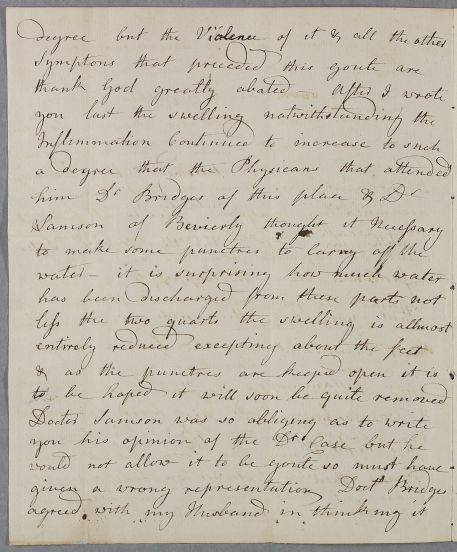 degree but the Violence of it & all the other
Symptons that preceded this goute are
thank God greatly abated After I wrote
you last the swelling natwithstanding the
Inflemmation Continued to increase to such
a degree that the Physicans that attended
him Dr Bridges of this place & Dr
Samson of Beverly thought it Necessary
to make some punctres to Carry off the
water - it is surprising how much water
has been discharged from these parts not
less the two quarts the swelling is allmost
entirely reduced excepting about the feet
& as the punctres are keepid open it is
to be hoped it will soon be quite removed
Doctor Samson was so obliging as to write
you his opinion of the Drs Case but he
would not allow it to be Goute so must have
given a wrong representation, Doctr Bridges
agreed with my Husband in thinking it